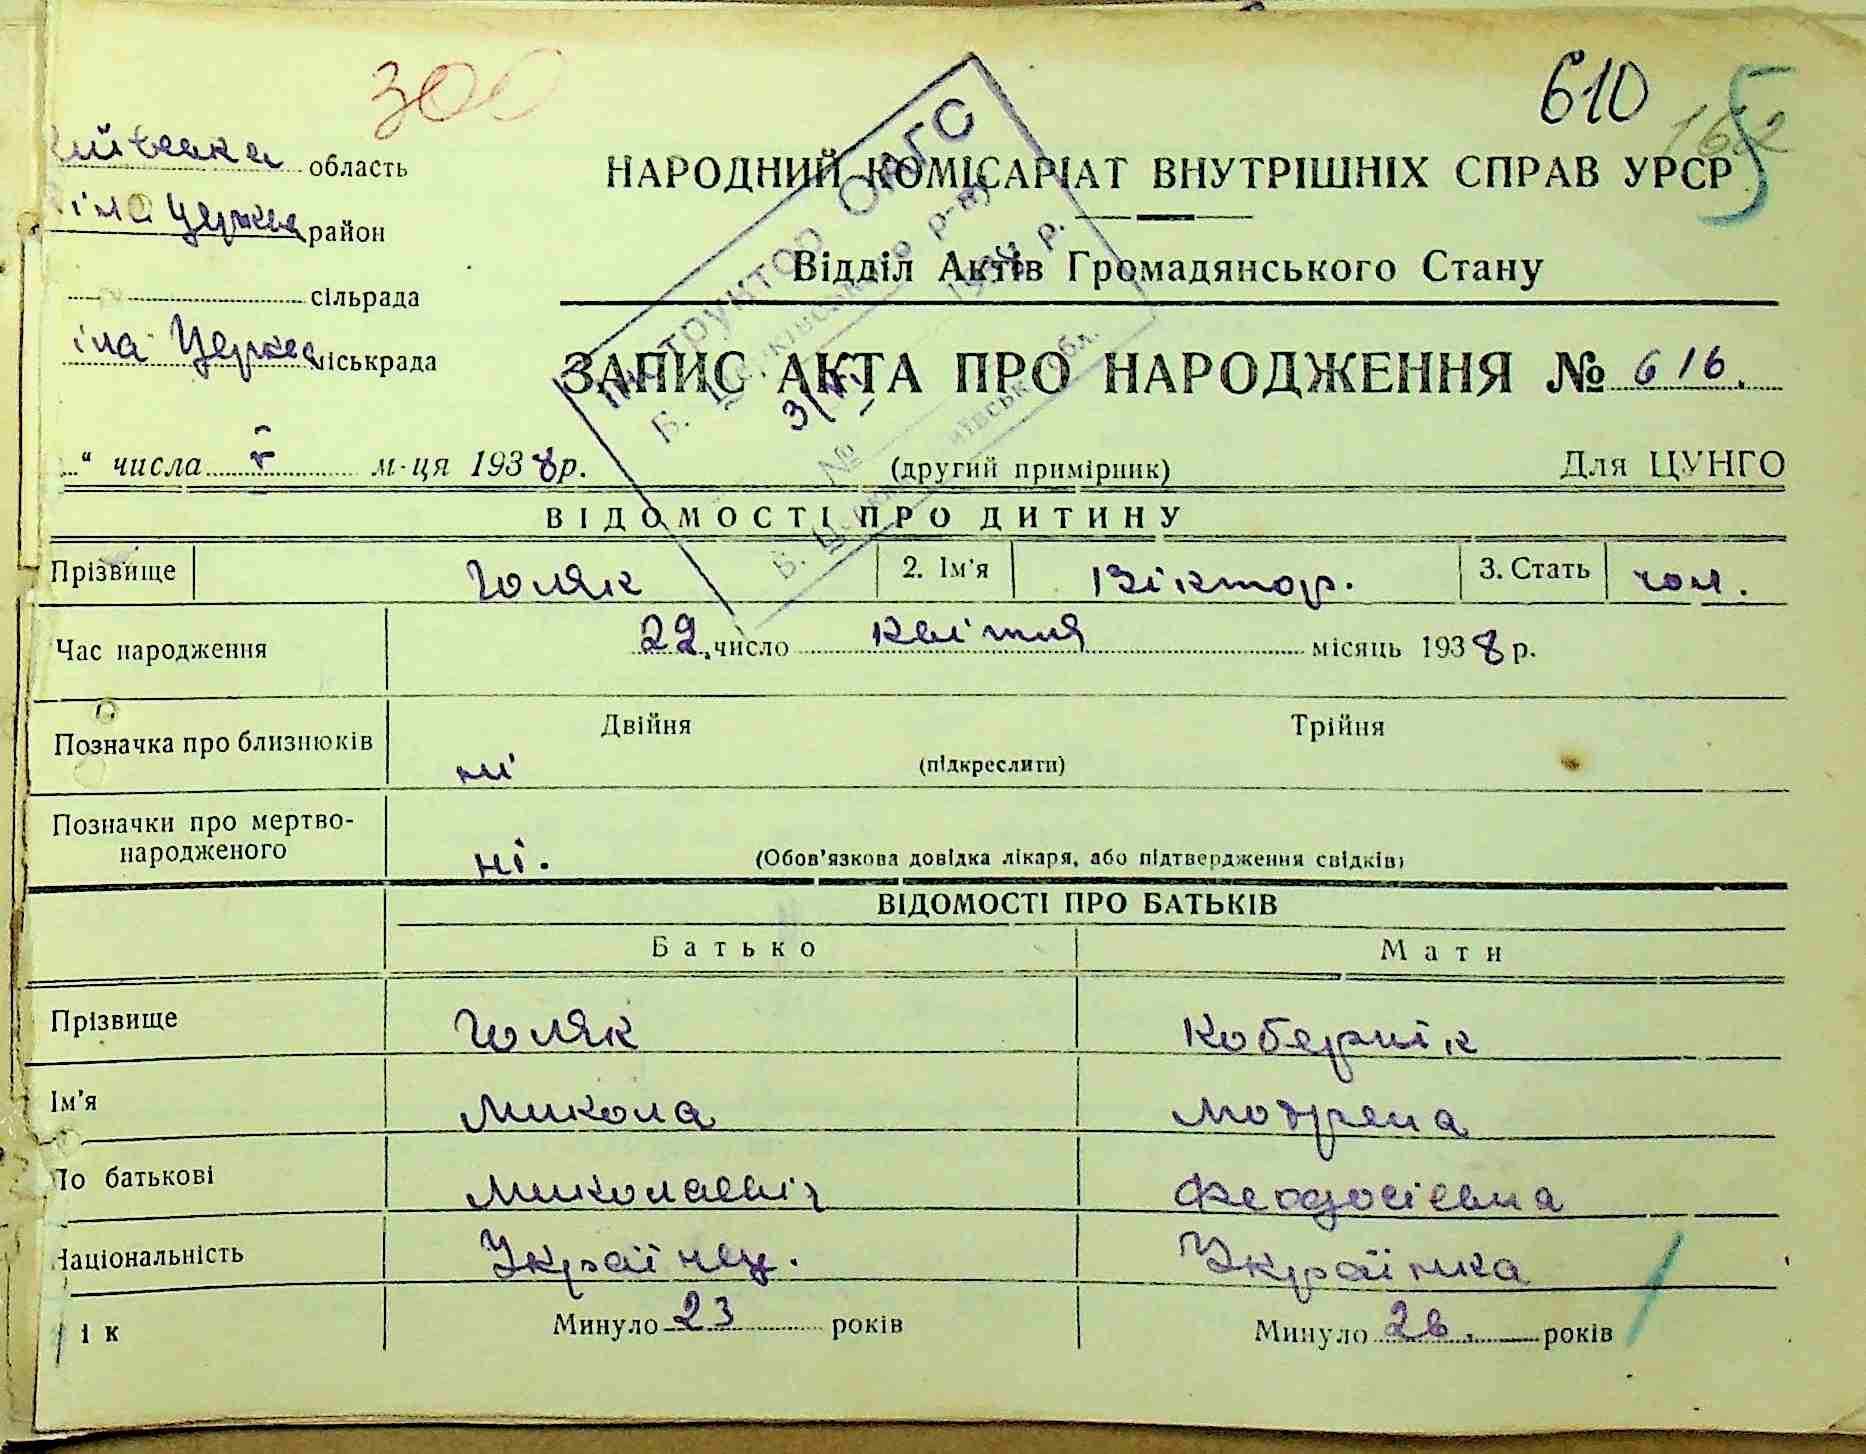 300
610
162
5
область
НАРОДНИЙ КОМІСАРІАТ ВНУТРІШНІХ СПРАВ УРСР
іла Церква район
Відділ Актів Громадянського Стану
сільрада
іла Церква міськрада
ЗАПИС АКТА ПРО НАРОДЖЕННЯ № 616.
“ числа м-ця 1938 р.
(другий примірник)
Для ЦУНГО
ВІДОМОСТІ ПРО ДИТИНУ
Прізвище Голяк 2. Ім'я Віктор. 3. Стать чол.
Час народження 22. число квітня місяць 1938 р.
Позначка про близнюків ні Двійня Трійня
(підкреслити)
Позначки про мертво-
народженого ні. (Обов'язкова довідка лікаря, або підтвердження свідків)
ВІДОМОСТІ ПРО БАТЬКІВ
Батько Мати
Прізвище Голяк Коберник
Ім'я Микола Мотрена
По батькові Миколаевіч Феодосіевна
Національність Українец. Українка
ік Минуло 23 років Минуло 26. років